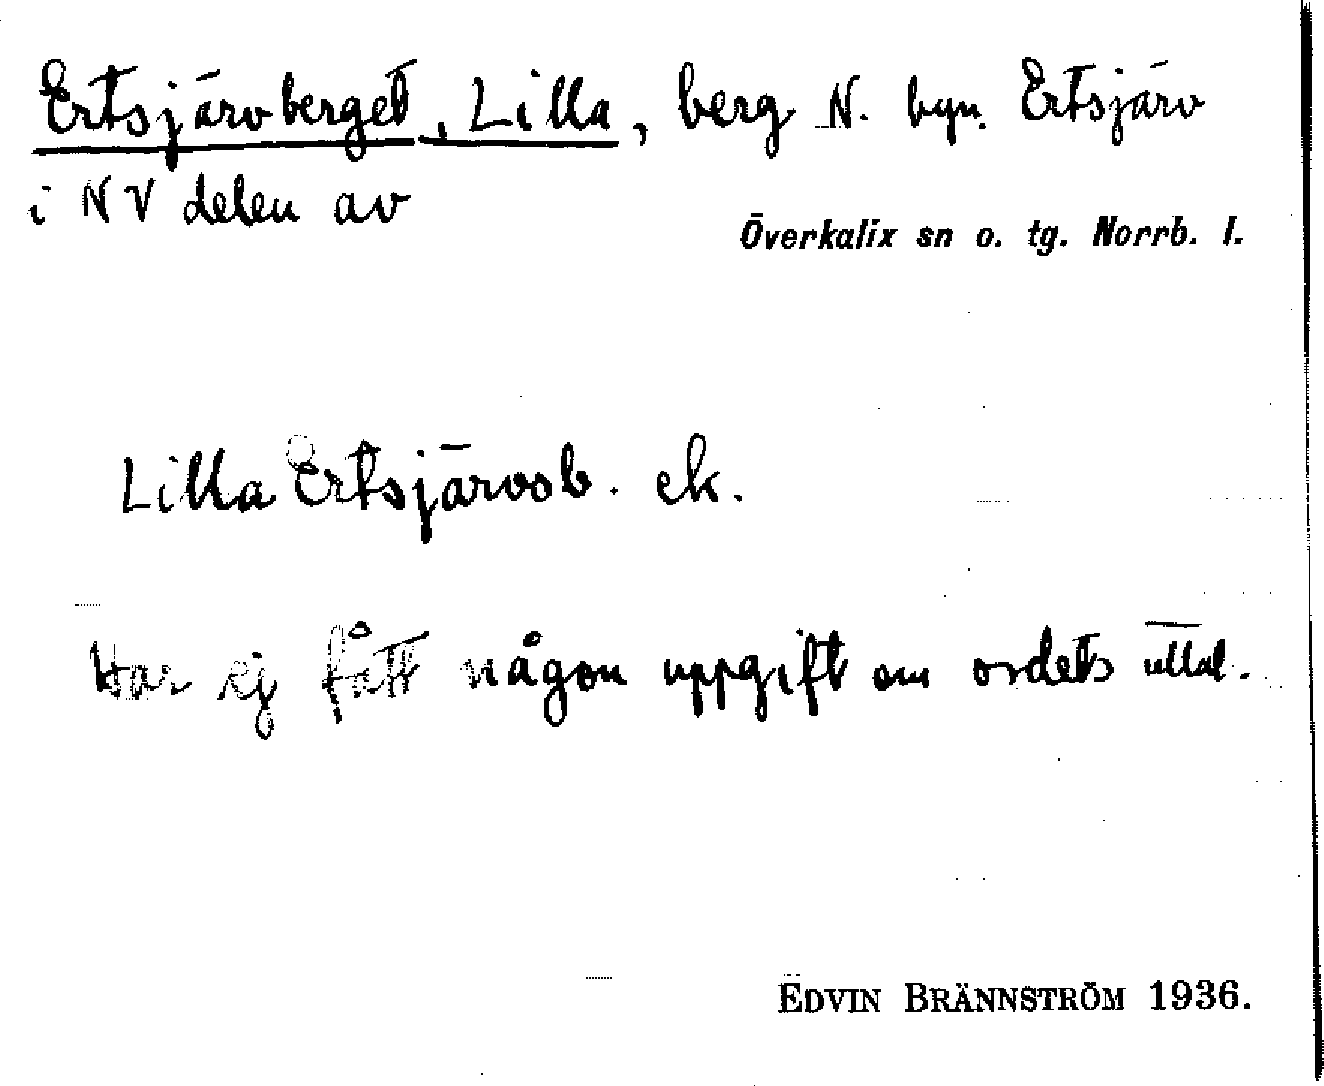 Ertsjärvberget, Lilla, berg N. byn Ertsjärv
i NV delen av
Överkalix sn o. tg. Norrb. l.
Lilla Ertsjärvsb. ek.
Har ej fått någon uppgift om ordets uttal.
EDVIN BRÄNNSTRÖM 1936.